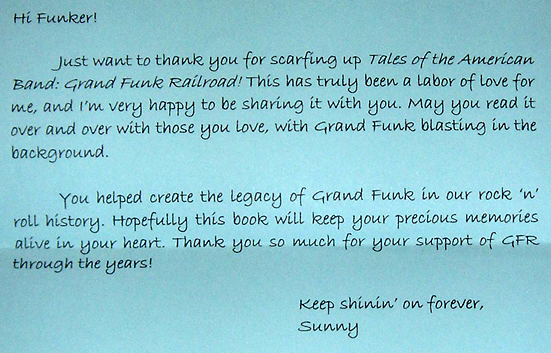 Hi Funker!
Just want to thank you for scarfing up Tales of the American
Band: Grand Funk Railroad! This has truly been a labor of love for
me, and I'm very happy to be sharing it with you. May you read it
over and over with those you love, with Grand Funk blasting in the
background.
You helped create the legacy of Grand Funk in our rock 'n'
roll history. Hopefully this book will keep your precious memories
alive in your heart. Thank you so much for your support of GFR
through the years!
Keep shinin' on forever,
Sunny